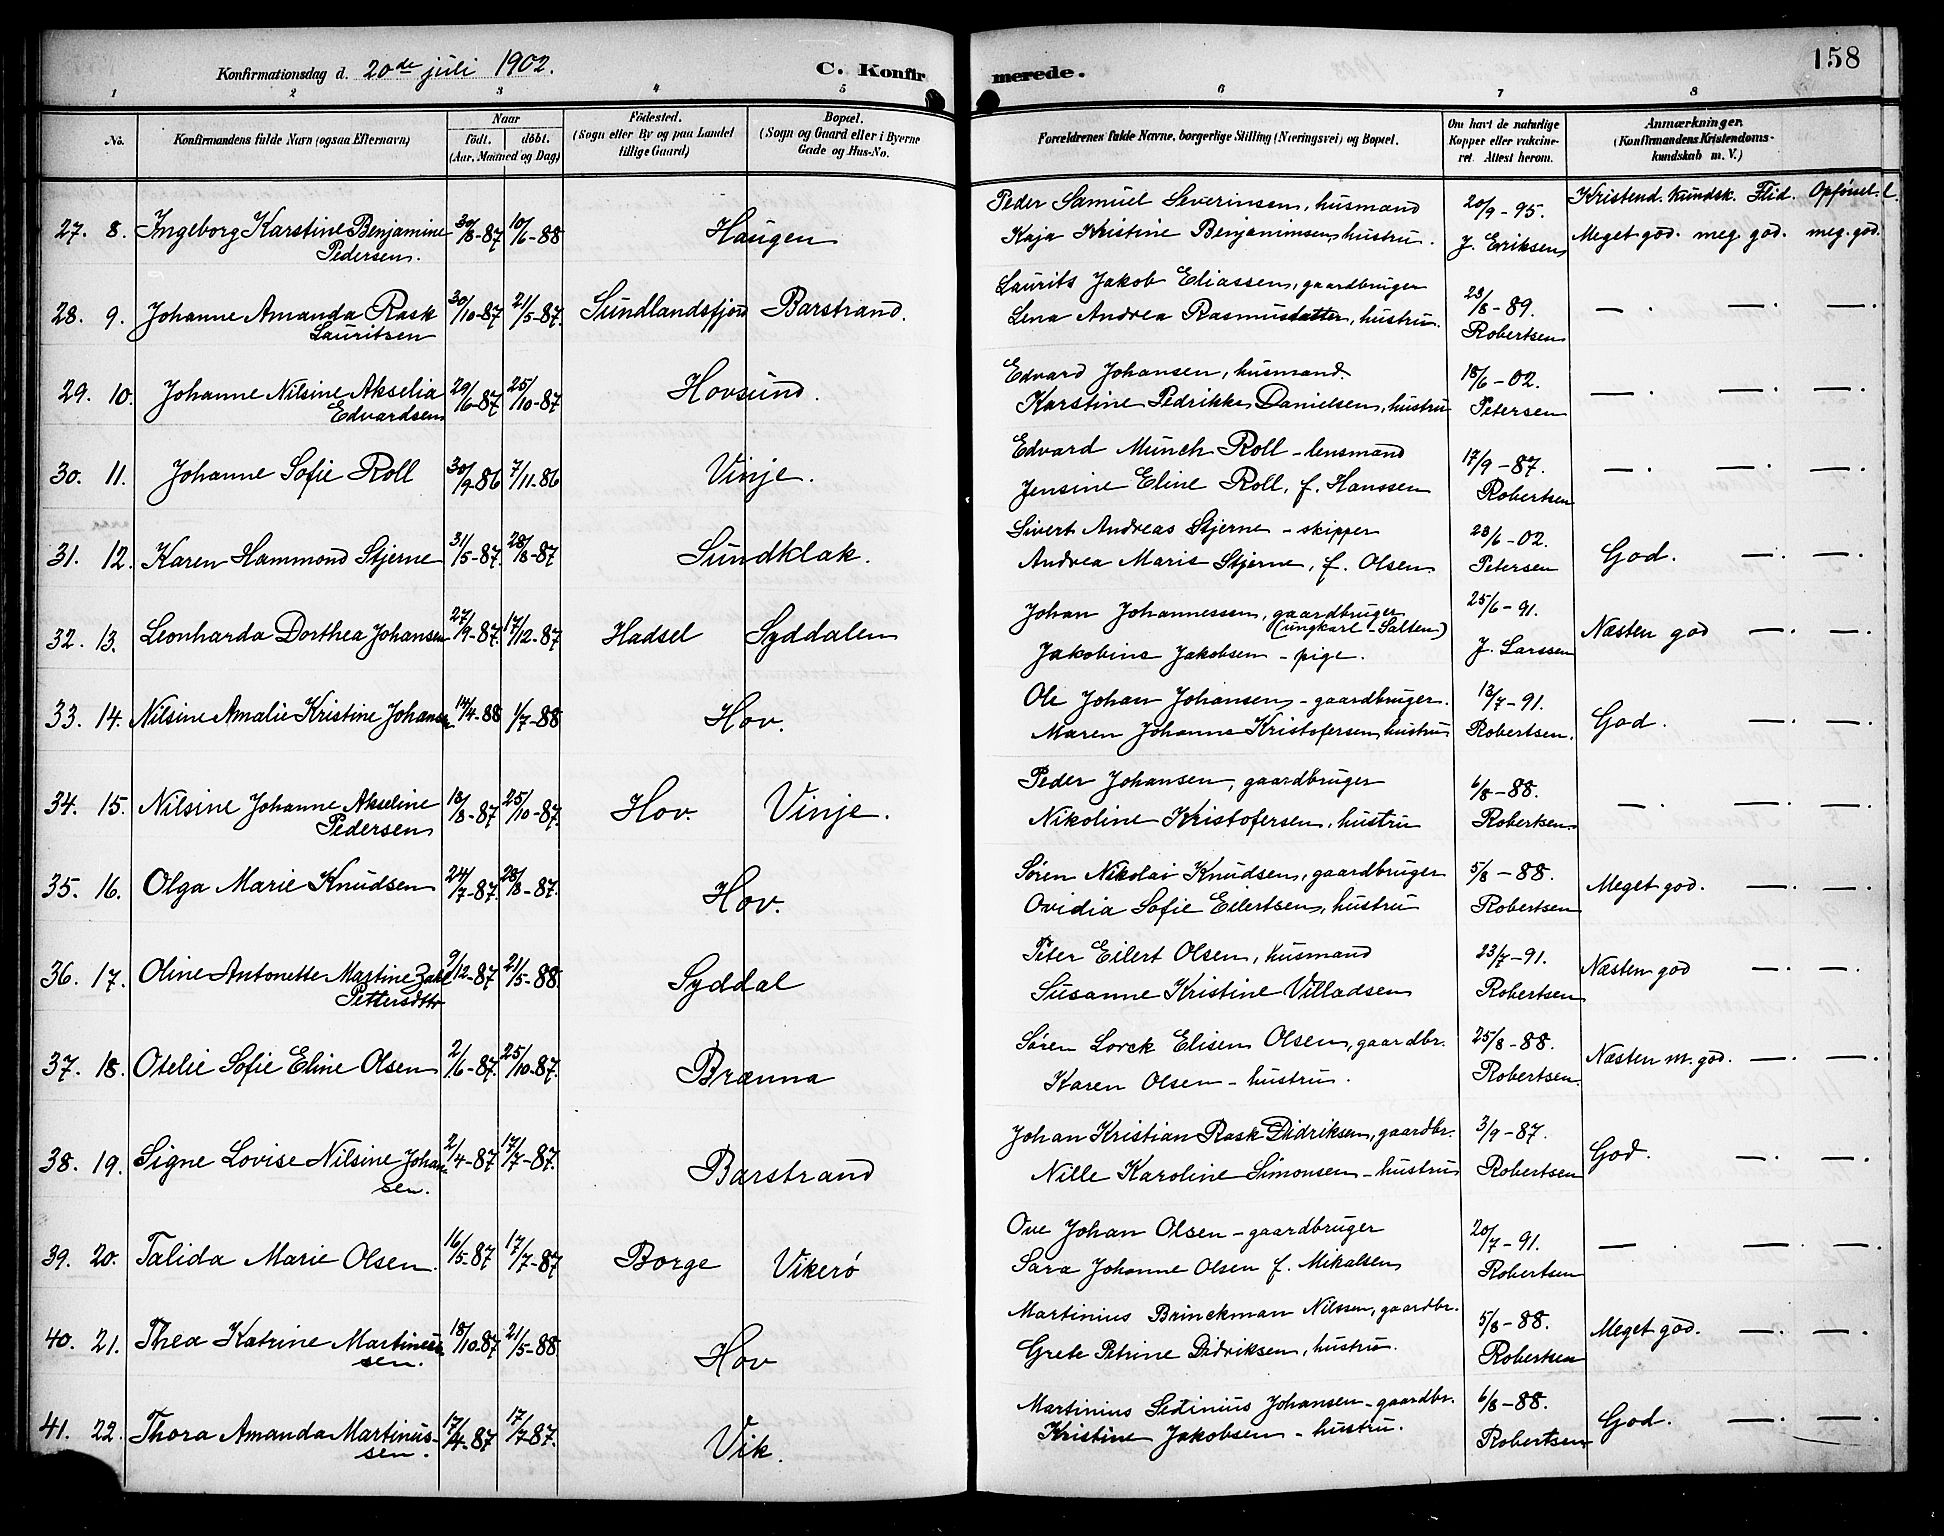 Konfirmationsdag d. 20de juli 1902. C. Konfirmerede. 158
1 2 3 4 5 6 7 8
No. Konfirmandens fulde Navn (ogsaa Efternavn) Naar født. døbt. (Aar, Maaned og Dag) Fødested. (Sogn eller By og paa Landet tillige Gaard) Bopæl. (Sogn og Gaard eller i Byerne Gade og Hus-No. Forældrenes fulde Navne, borgerlige Stilling (Næringsvei) og Bopæl. Om havt de naturlige Kopper eller vakcineret Attest herom. Anmærkninger. (Konfirmandens Kristendomskundskab m. V.)
Peder Samuel Severinsen, husmand 20/9-95. Kristend. kundsk. Flid. Opførsel.
27. 8. Ingeborg Karstine Benjamine 30/8-87 10/6-88 Haugen Kaja Kristine Benjaminsen, hustru. J. Eriksen Meget god. meg. god. meg. god.
Pedersen.
Laurits Jakob Eliassen, gaardbruger 23/8-89.
28. 9. Johanne Amanda Rask 30/10-87 21/5-87. Sundlandsfjord Barstrand. Lena Andrea Rasmusdatter, hustru. — . — . — .
Lauritsen Robertsen
Edvard Johansen, husmand. 18/6-02.
29. 10. Johanne Nilsine Akselia 29/6-87 25/10-87 Hovsund. Karstine Pedrikke Danielsen, hustru Petersen — . — . — .
Edvardsen
Edvard Münch Roll - lensmand 17/9-87.
30. 11. Johanne Sofie Roll 30/9-86 7/11-86 Vinje. Jensine Eline Roll, f. Hanssen Robertsen — . — . — .
Sivert Andreas Stjerne - skipper 23/6-02.
31. 12. Karen Hammond Stjerne 31/5-87. 28/8-87 Sundklak. Andrea Marie Stjerne, f. Olsen. Petersen God. — . — .
Johan Johannessen, gaardbruger 25/6-91.
(ungkarl - Salten)
32. 13. Leonharda Dorthea Johansen 27/9-87. 17/12-87 Hadsel Syddalen Jakobine Jakobsen - pige. J. Larssen Næsten god — . — .
Ole Johan Johansen - gaardbruger. 13/7-91.
33. 14. Nilsine Amalie Kristine Johansen 14/4-88 1/7-88 Hov. Maren Johanna Kristofersen, hustru Robertsen. God. — . — .
Peder Johansen, gaardbruger 6/8-88.
34. 15. Nilsine Johanne Akseline 13/8-87 25/10-87. Hov. Vinje. Nikoline Kristofersen, hustru Robertsen. — . — . — .
Pedersen
Søren Nikolai Knudsen, gaardbruger 5/8-88.
35. 16. Olga Marie Knudsen 24/7-87. 28/8-87. Hov. Ovidia Sofie Eilertsen, hustru Robertsen Meget god. — . — .
Peter Eilert Olsen, husmand 23/7-91.
36. 17. Oline Antonette Martine Zahl 9/12-87 21/5-88. Syddal Susanne Kristine Villadsen Robertsen Næsten god — . — .
Pettersdtr
Søren Lorck Elisen Olsen, gaardbr. 25/8-88.
37. 18. Otelie Sofie Eline Olsen 2/6-87. 25/10-87. Brænna Karen Olsen - hustru. Robertsen. Næsten m. god. — . — .
Johan Kristian Rask Didriksen, gaardbr. 3/9-87.
38. 19. Signe Lovise Nilsine Johan 2/4-87 17/7-87. Barstrand Nille Karoline Simonsen - hustru Robertsen God. — . — .
sen.
Ove Johan Olsen - gaardbruger 20/7-91.
39. 20. Talida Marie Olsen. 16/5-87 17/7-87 Borge Vikerø Sara Johanne Olsen f. Mikalsen Robertsen — . — . — .
Martinius Brinckman Nilssen, gaardbr. 5/8-88.
40. 21. Thea Katrine Martinius 18/10-87 21/5-88 Hov Grete Petrine Didriksen, hustru. Robertsen Meget god. — . — .
sen.
Martinius Johansen - gaardbr. 6/8-88.
41. 22. Thora Amanda Martinus- 17/4-87 17/7-87. Vik. Kristine Jakobsen - hustru. Robertsen God. — . — .
sen.